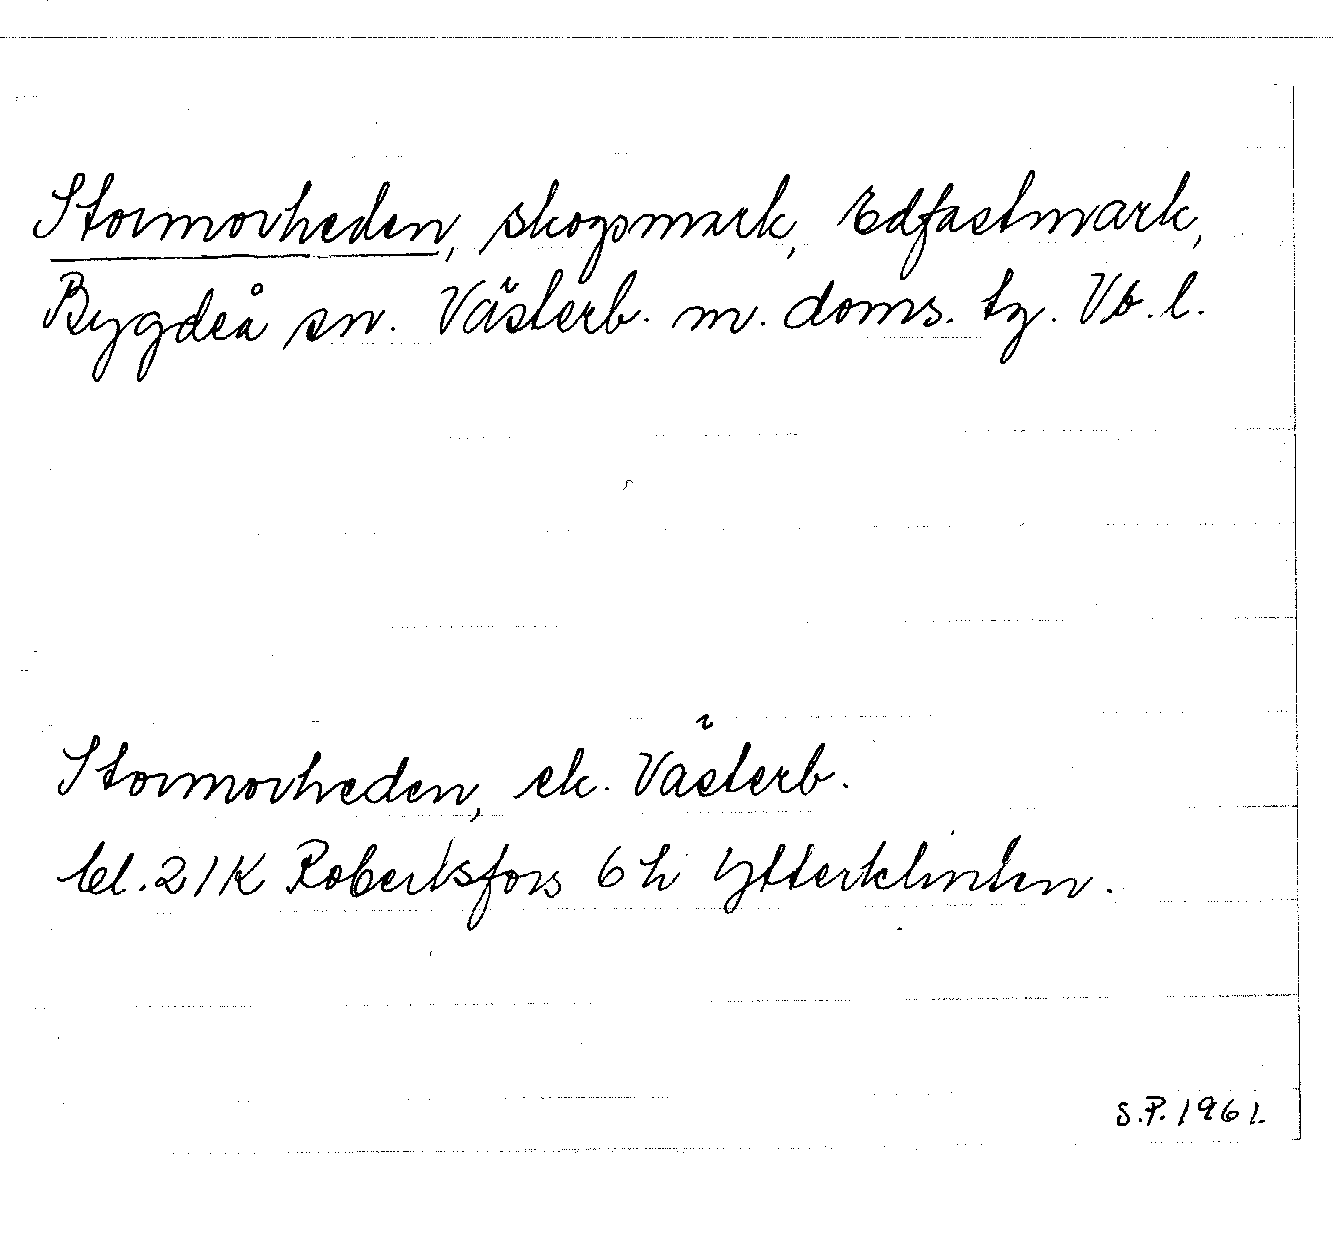 Stormorheden, skogsmark, Edfastmark,
Bygdeå sn. Västerb. m. doms. tg. Vb.l.
Stormorheden, ek. Västerb.
bl. 21K Robertsfors 6 h Ytterklinten.
S.P. 1961.